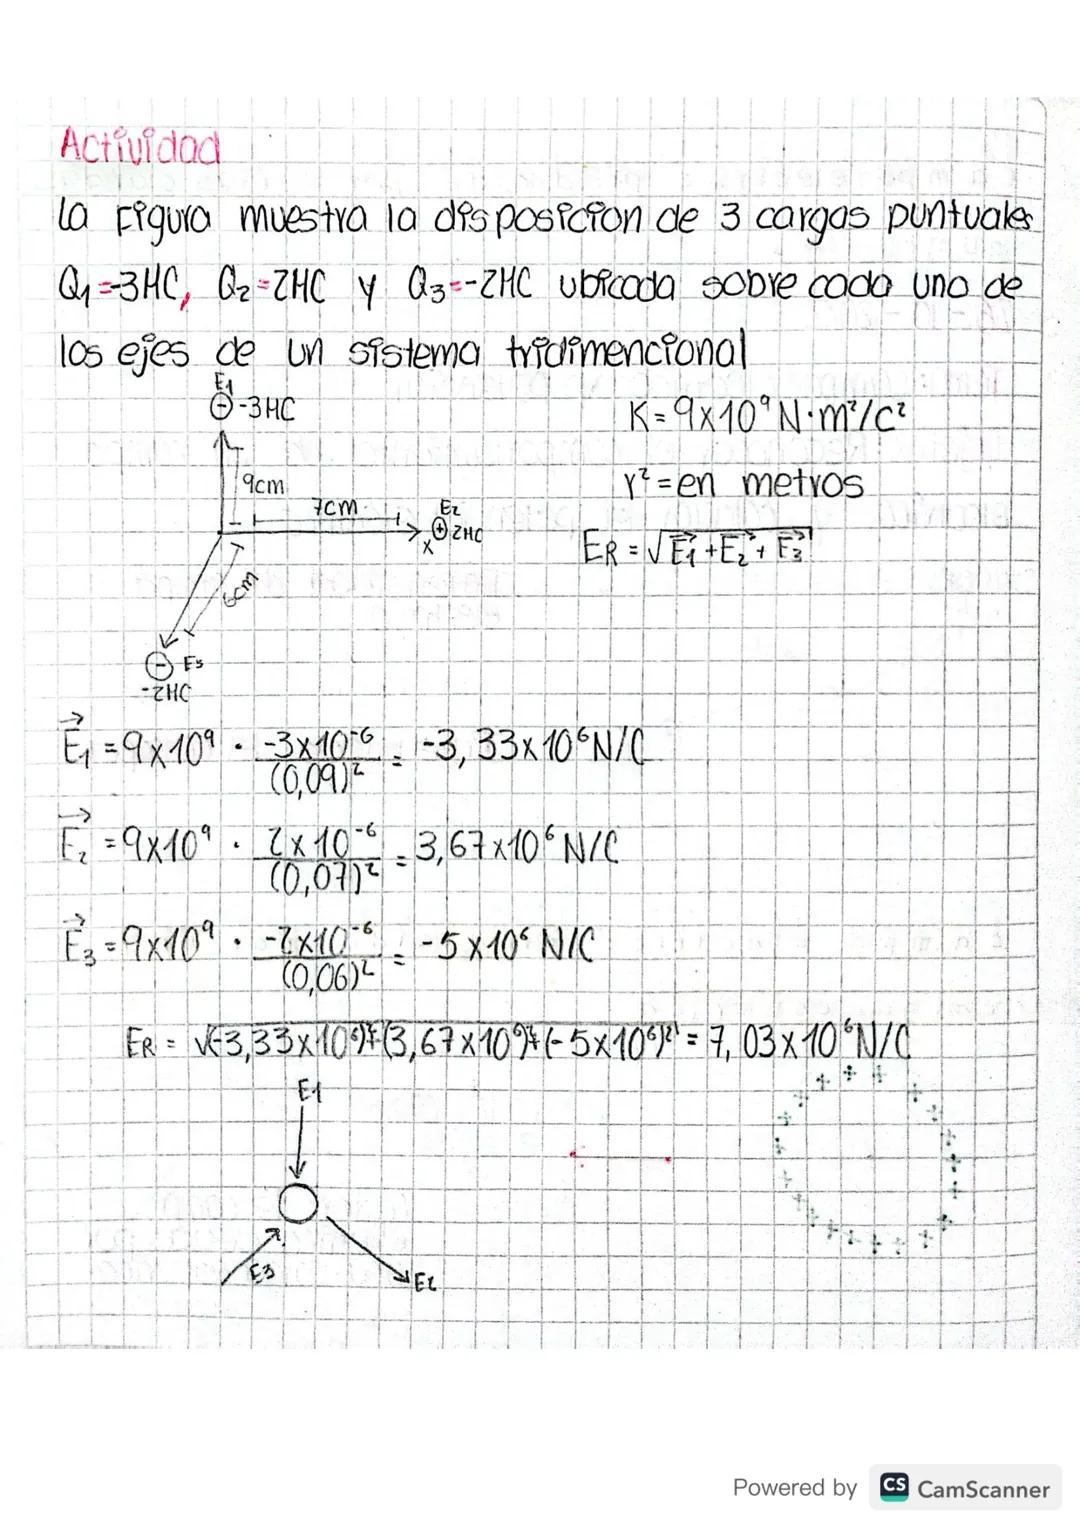 Actividad
la Figura muestra la disposicion de 3 cargas puntuales
Q1=-3HC, Q2=2HC y Q3=-2HC ubicada sobre cada uno de
los ejes de un sistema tridimencional
E1
⊖-3HC
K=9x10⁹N·m²/C²
9cm
r²=en metros
7cm
E2
⊕2HC
x
ER=√E1+E2+E3
6cm
⊖ E3
-2HC
E1=9x10⁹ · -3x10⁻⁶/(0,09)² = -3,33x10⁶N/C
E2=9x10⁹ · 2x10⁻⁶/(0,07)² = 3,67x10⁶N/C
E3=9x10⁹ · -2x10⁻⁶/(0,06)² = -5x10⁶ N/C
ER = √(-3,33x10⁶)²+(3,67x10⁶)²+(-5x10⁶)² = 7,03x10⁶N/C
E1
E3
E2
Powered by CS CamScanner